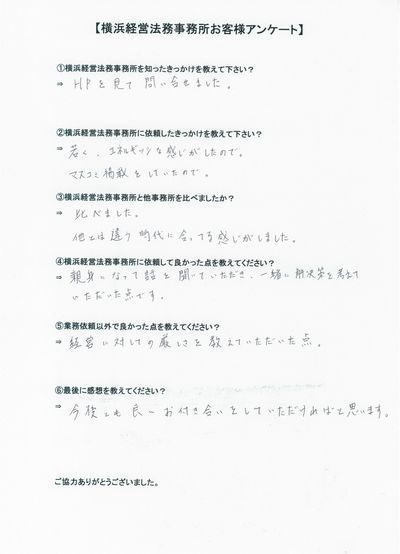 【横浜経営法務事務所お客様アンケート】
①横浜経営法務事務所を知ったきっかけを教えて下さい？
⇒ HPを見て問い合せました。
②横浜経営法務事務所に依頼したきっかけを教えて下さい？
⇒ 若く、エネルギッシュな感じがしたので。
マスコミ掲載をしていたので。
③横浜経営法務事務所と他事務所を比べましたか？
⇒ 比べました。
他とは違う時代に合ってる感じがしました。
④横浜経営法務事務所に依頼して良かった点を教えてください？
⇒ 親身になって話を聞いていただき、一緒に解決策を考えて
いただいた点です。
⑤業務依頼以外で良かった点を教えてください？
⇒ 経営に対しての厳しさを教えていただいた点。
⑥最後に感想を教えてください？
⇒ 今後とも良いお付き合いをしていただければと思います。
ご協力ありがとうございました。